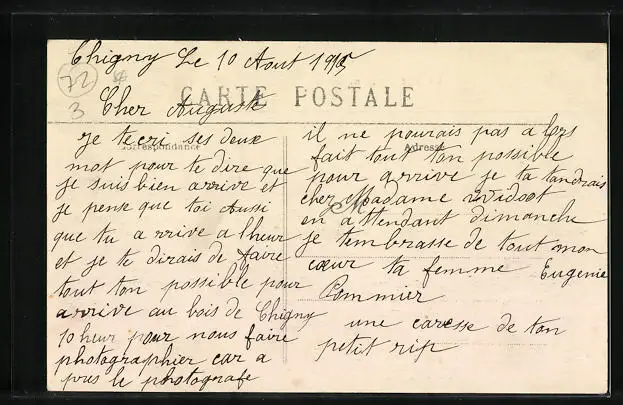 Chigny Le 10 Aout 1915
72
3
CARTE POSTALE
Cher Auguste
Correspondance
Adresse
je tecri ses deux
mot pour te dire que
je suis bien arrive et
je pense que toi Aussi
que tu arrive a lheur
et je te dirais de faire
tout ton possible pour
arrive au bois de Chigny
10 heur pour nous faire
photographier car a
pres le photografe
il ne pourais pas alors
fait tout ton possible
pour arrive je ta tandrais
cher Madame
en attendant dimanche
je tembrasse de tout mon
cœur ta femme Eugenie
Pommier
une caresse de ton
petit